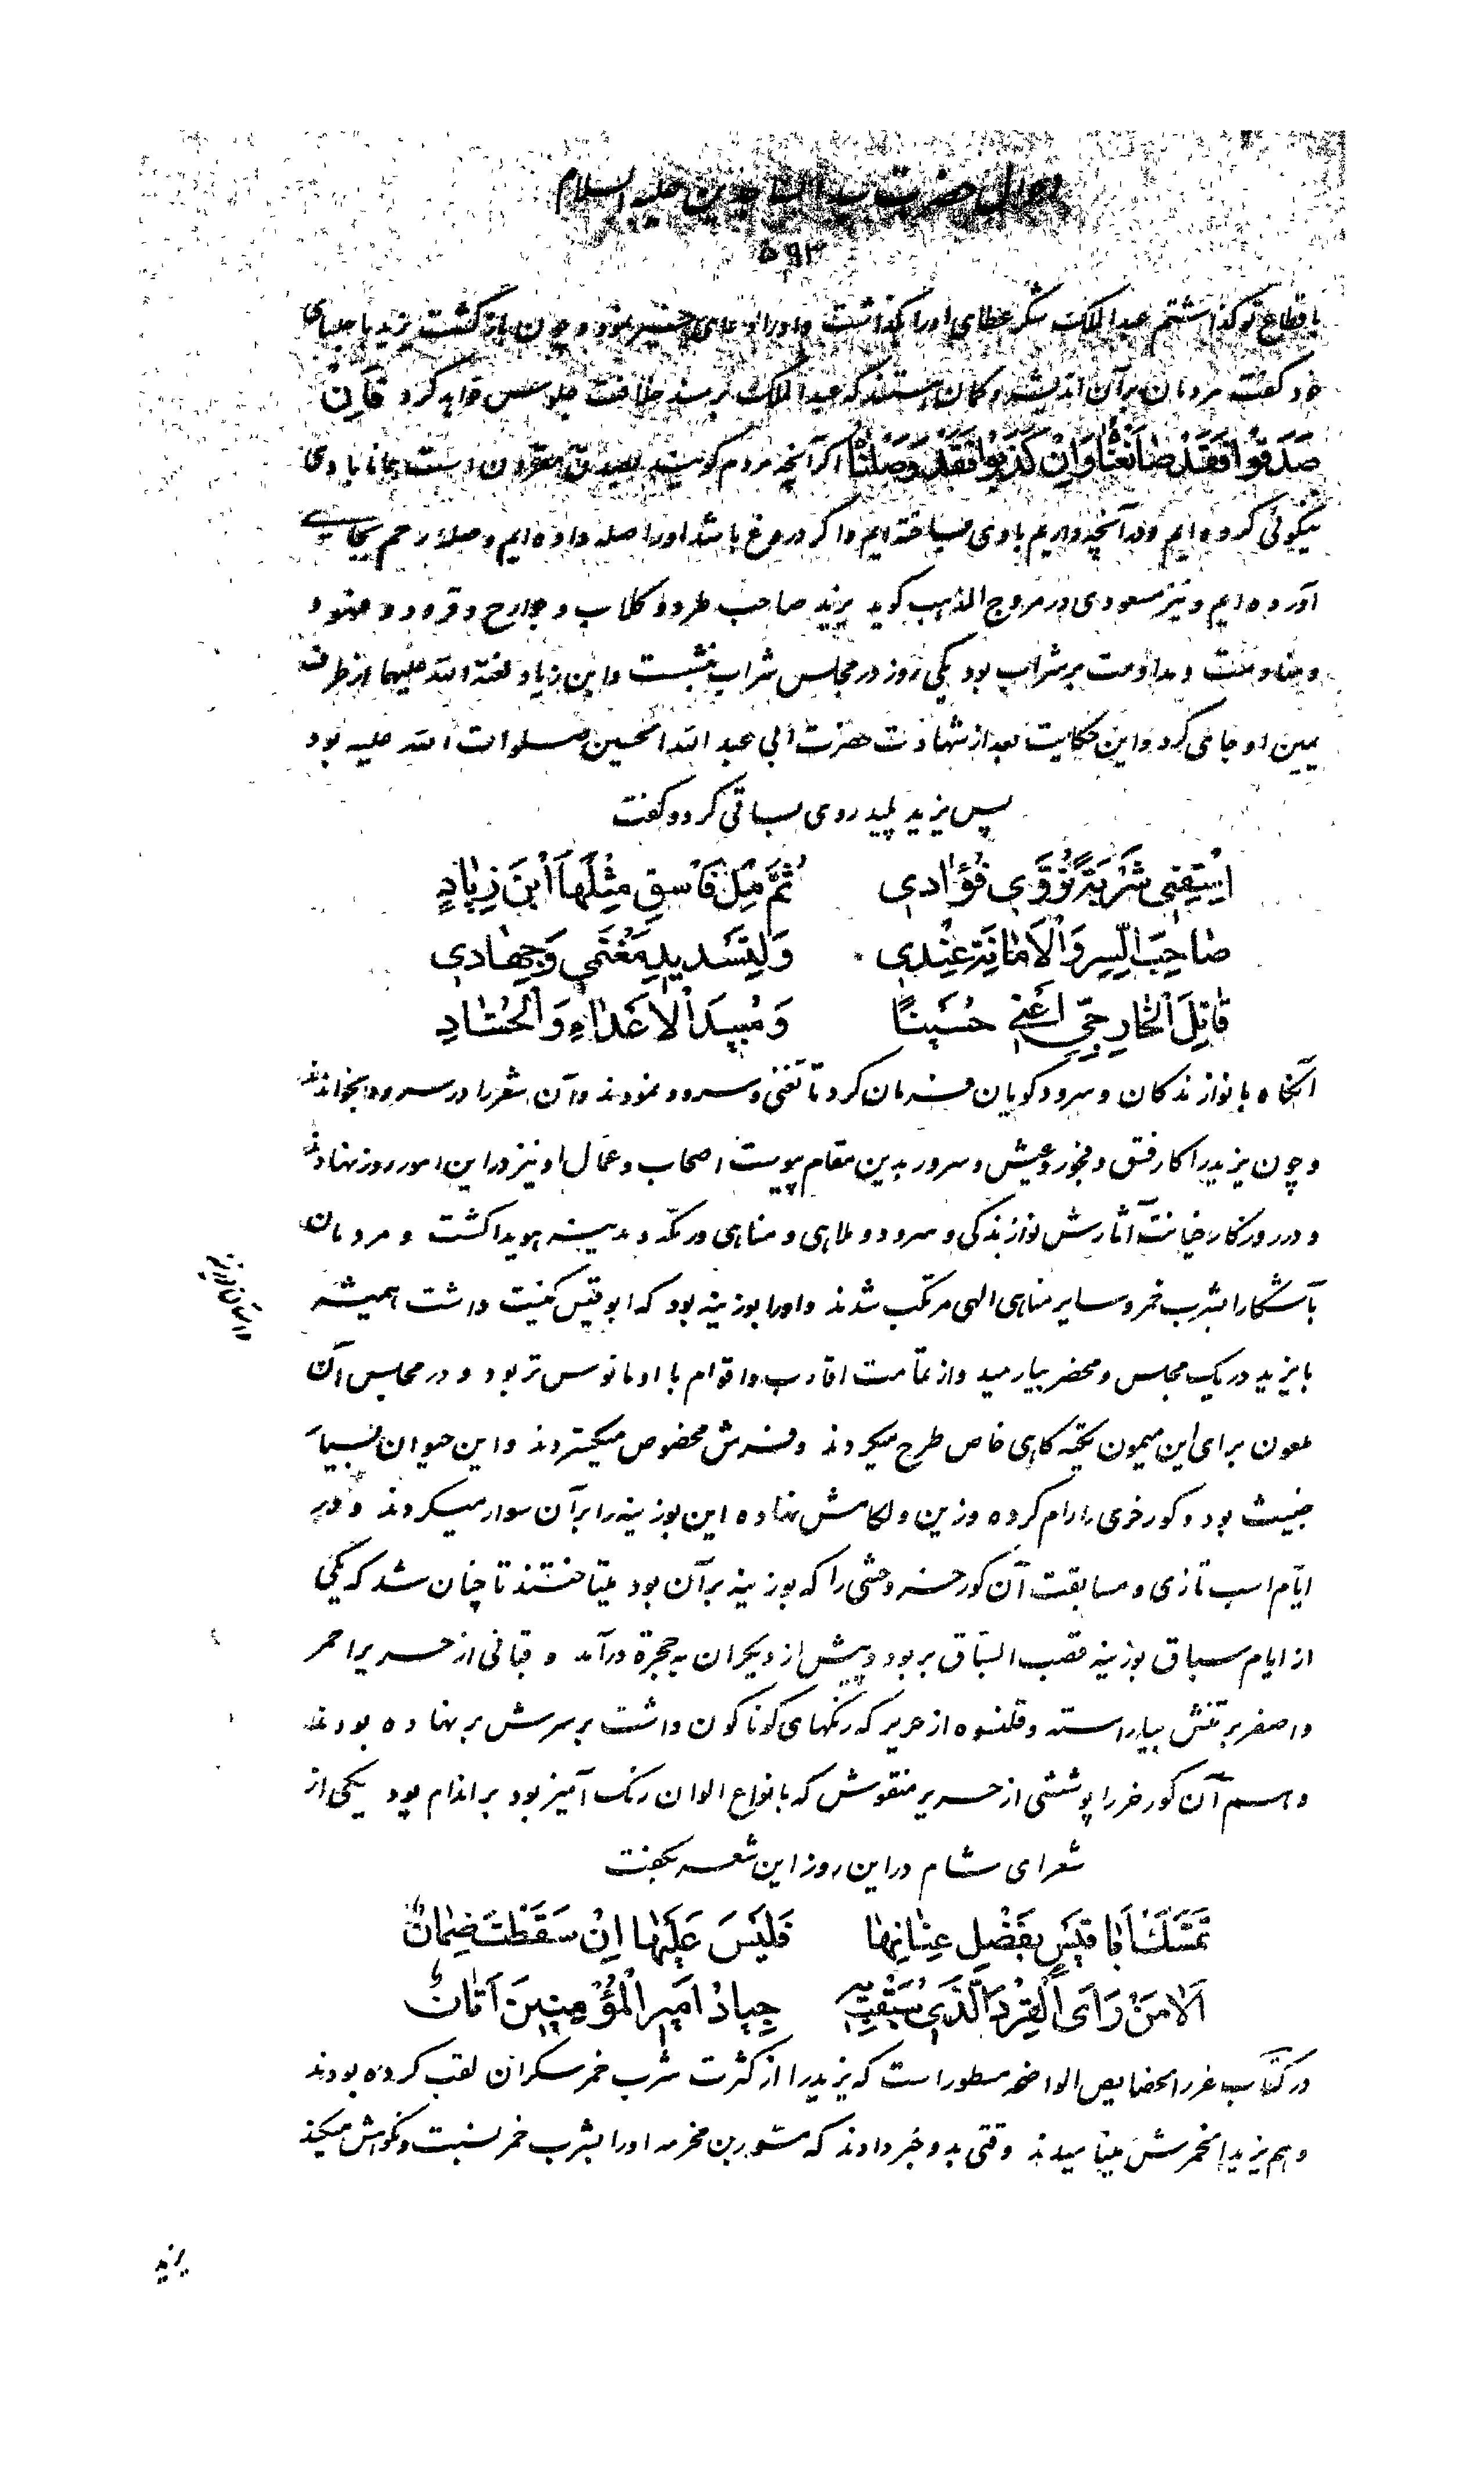 احوال حضرت سید الساجدین علیه السلام
۵۹۳
باقطاع تو گذاشتم عبدالملک شکر عطای او را بگذاشت و او را دعای خیر نمود و چون بازگشت یزید با جلسای
خود گفت مردمان بر آن اندیشه و گمان هستند که عبدالملک بر مسند خلافت جلوس خواهد کرد فَاِنْ
صَدَقُوا فَقَدْ صٰانَعْنٰا وَاِنْ كَذَبُوا فَقَدْ وَصَلْنٰا اگر آنچه مردم گویند بصدق مقرون است همانا با وی
نیکوئی کرده ایم و در آنچه داریم با وی بساخته ایم و اگر دروغ باشد او را صله داده ایم و صلهٔ رحم بجای
آورده ایم و نیز مسعودی در مروج الذهب گوید یزید صاحب طرد و کلاب و جوارح و قرود و فهود
و منادمت و مداومت بر شراب بود یکی روز در مجلس شراب بنشست و ابن زیاد لعنة الله علیهما از طرف
یمین او جای کرد و این حکایت بعد از شهادت حضرت ابی عبدالله الحسین صلوات الله علیه بود
پس یزید پلید روی بساقی کرد و گفت
اِسْقِنِی شَرْبَةً تُرَوّی فُؤٰادی ثُمَّ مِلْ فَاسْقِ مِثْلَهٰا ابْنَ زِیٰادٍ
صٰاحِبَ السِّرِ وَالْاَمٰانَةِ عِنْدی وَلِتَسْدیدِ مَغْنَمی وَجِهٰادی
قٰاتِلَ الْخٰارِجِیِّ اَعْنی حُسَیْنًا وَمُبیدَ الْاَعْدٰاءِ وَالْحُسّٰادِ
آنگاه با نوازندگان و سرودگویان فرمان کرد تا تغنی و سرود نمودند و آن شعر را در سرود بخواندند
و چون یزید را کار فسق و فجور و عیش و سرور بدین مقام پیوست اصحاب و عمال او نیز در این امور روز نهادند
و در روزگار خیانت آثارش نوازندگی و سرود و ملاهی و مناهی در مکه و مدینه هویدا گشت و مردمان
بآشکارا بشرب خمر و سایر مناهی الهی مرتکب شدند و او را بوزینه بود که ابوقیس کنیت داشت همیشه
داستان بوزینه
با یزید در یک مجلس و محضر بیارمید و از تمامت اقارب و اقوام با او مانوس تر بود و در مجلس آن
ملعون برای این میمون تکیه گاهی خاص طرح میکردند و فرش مخصوص میگستردند و این حیوان بسیار
خبیث بود و گورخری را رام کرده و زین و لگامش نهاده این بوزینه را بر آن سوار میکردند و در
ایام اسب تازی و مسابقت آن گورخر وحشی را که بوزینه بر آن بود میتاختند تا چنان شد که یکی
از ایام سباق بوزینه قصب السباق بربود و پیش از دیگران به حجره درآمد و قبائی از حریر احمر
و اصفر بر تنش بیاراسته و قلنسوه از حریر که رنگهای گوناگون داشت بر سرش بر نهاده بودند
و هم آن گورخر را پوششی از حریر منقوش که بانواع الوان رنگ آمیز بود بر اندام بود یکی از
شعرای شام در این روز این شعر بگفت
تَمَسَّكْ اَبٰا قَیْسٍ بِفَضْلِ عِنٰانِهٰا فَلَیْسَ عَلَیْهٰا اِنْ سَقَطْتَ ضِمٰانٌ
اَلٰا مَنْ رَاَی الْقِرْدَ الَّذی سُبِقَتْ بِهِ جِیٰادُ اَمیرِ الْمُؤْمِنینَ اَتٰانٌ
در کتاب غرر الخصایص الواضحه مسطور است که یزید را از کثرت شرب خمر سکران لقب کرده بودند
و هم یزید الخمرش مینامیدند وقتی بدو خبر دادند که مسور بن مخرمه او را بشرب خمر نسبت و نکوهش میکند
یزید